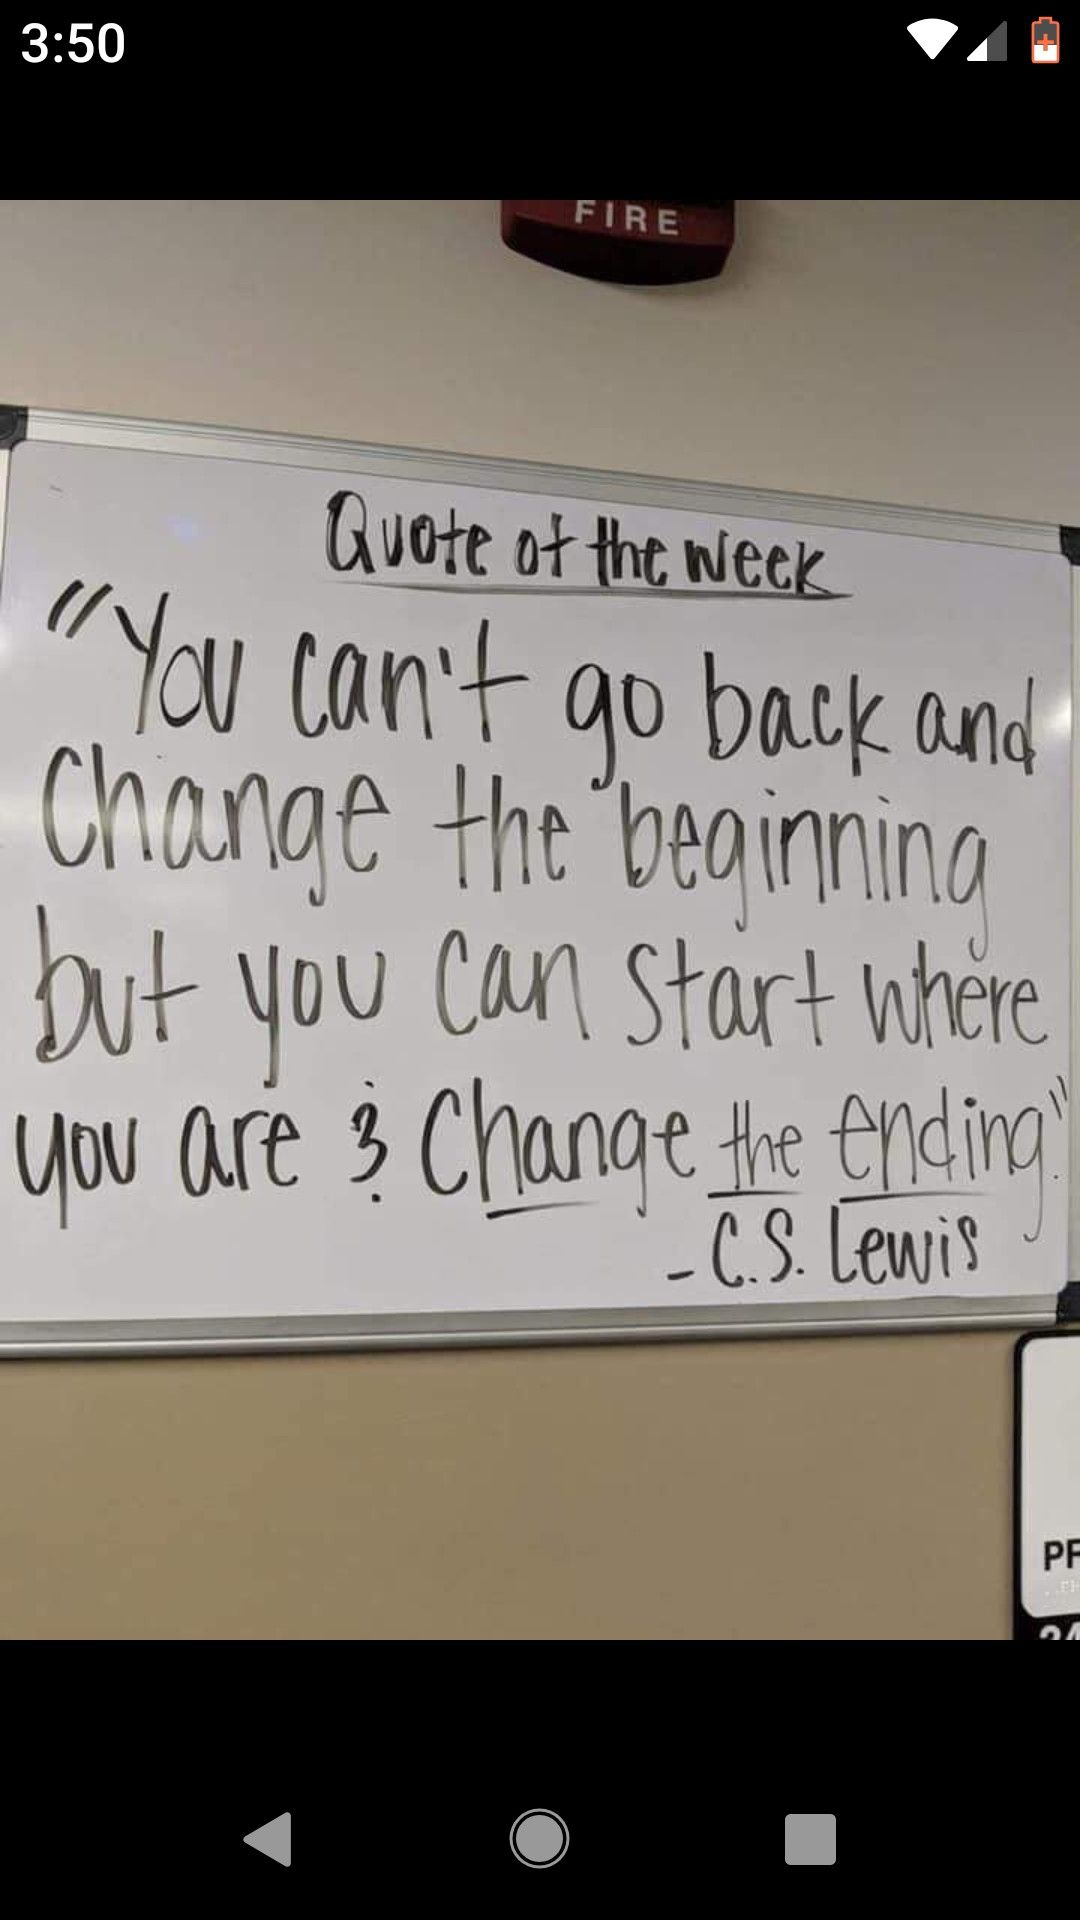 3:50
FIRE
Quote of the week
"You can't go back and
Change the beginning
but you can start where
you are & Change the ending."
- C.S. Lewis
PF